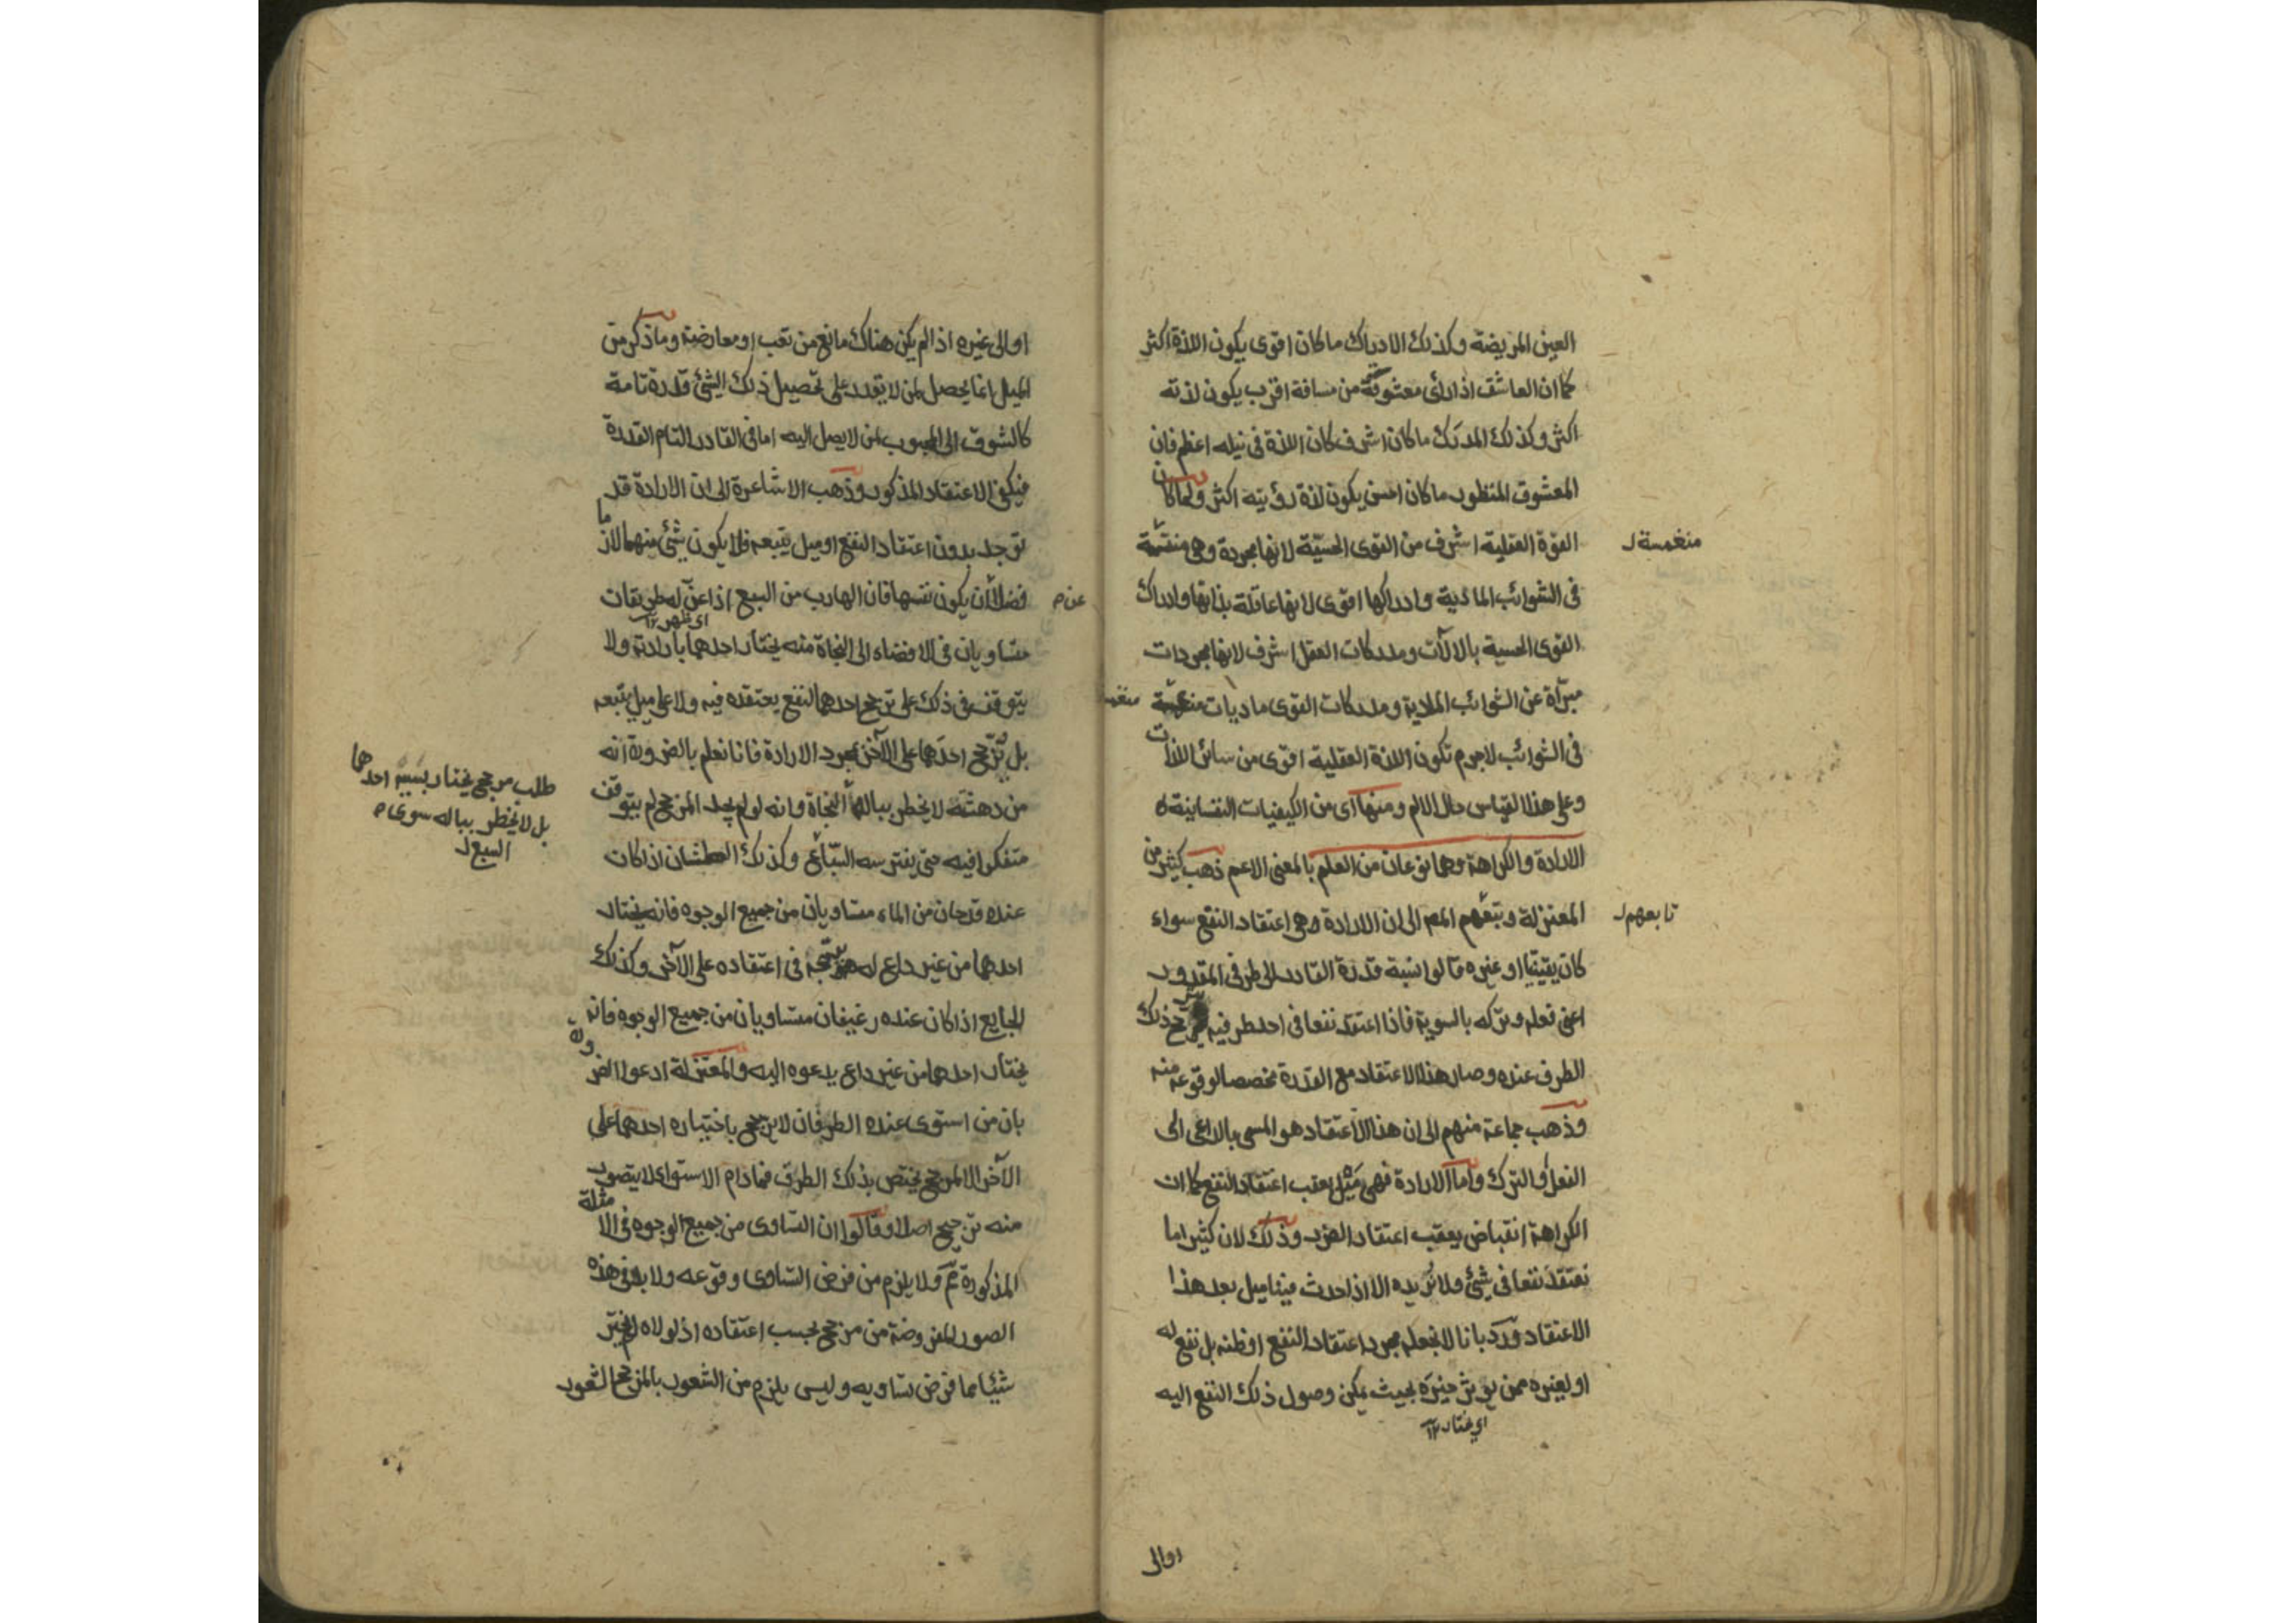 العين المريضة وكذلك الادراك ما كان اقوى يكون اللذة اكثر
كما ان العاشق اذا رأى معشوقه من مسافة اقرب يكون لذته
اكثر وكذلك المدرَك ما كان اشرف كان اللذة فى نيله اعظم فان
المعشوق المنظور ما كان احسن يكون لذة رؤيته اكثر ولما كان
القوة العقلية اشرف من القوى الحسيّة لانها مجردة وهى منغمسة
منغمسة
فى الشوائب المادية وادراكها اقوى لانها عاقلة بذاتها وادراك
القوى الحسية بالآلات ومدركات العقل اشرف لانها مجردات
مبرّاة عن الشوائب المادية ومدركات القوى ماديات منغمسة
فى الشوائب لاجرم تكون اللذة العقلية اقوى من سائر اللذات
وعلى هذا القياس حال الالم ومنها اى من الكيفيات النفسانية
الارادة والكراهة وهما نوعان من العلم بالمعنى الاعم ذهب كثير من
المعتزلة وتبعهم المص الى ان الارادة هى اعتقاد النفع سواء
تابعهم
كان يقينيا او غيره قالوا نسبة قدرة القادر الى طرفى المقدور
اعنى فعله وتركه بالسوية فاذا اعتقد نفعا فى احد طرفيه ترجح ذلك
الطرف عنده وصار هذا الاعتقاد مع القدرة مخصصا لوقوعه منه
وذهب جماعة منهم الى ان هذا الاعتقاد هو المسمى بالداعى الى
الفعل والترك واما الارادة فهى ميل يعقب اعتقاد النفع كما ان
الكراهة انقباض يعقب اعتقاد الضرر وذلك لان كثيرا ما
نعتقد نفعا فى شئ ولا نريده الا اذا حدث فينا ميل بعد هذا
الاعتقاد ورد بانا لا نجعله مجرد اعتقاد النفع او ظنه بل نفع له
او لغيره ممن يؤثر خيره بحيث يمكن وصول ذلك النفع اليه
اى يختار ١٢
او الى
او الى غيره اذا لم يكن هناك مانع من تعب او معارضة وما ذكر من
الميل انما يحصل لمن لا يقدر على تحصيل ذلك الشئ قدرة تامة
كالشوق الى المحبوب لمن لا يصل اليه اما فى القادر التام القدرة
فيكفى الاعتقاد المذكور وذهب الاشاعرة الى ان الارادة قد
توجد بدون اعتقاد النفع او ميل يتبعه فلا يكون شئ منهما لازما
فضلا أن يكون نفسها فان الهارب من السبع اذا عنّ له طريقان
عن
اى ظهر ١٢
متساويان فى الافضاء الى النجاة منه يختار احدهما بارادته ولا
يتوقف فى ذلك على ترجيح احدهما لنفع يعتقده فيه ولا على ميل يتبعه
بل ترجّح احدهما على الآخر بمجرد الارادة فانا نعلم بالضرورة انه
من دهشته لا يخطر بباله النجاة وانه لو لم يجد المرجح لم يتوقف
طلب مرجح يختار بسببه احدهما
بل لا يخطر بباله سوى
السبع
متفكرا فيه حتى يفترسه السبّاع وكذلك العطشان اذا كان
عنده قدحان من الماء متساويان من جميع الوجوه فانه يختار
احدهما من غير داع له يرجحه فى اعتقاده على الآخر وكذلك
الجايع اذا كان عنده رغيفان متساويان من جميع الوجوه فانه
يختار احدهما من غير داع يدعوه اليه والمعتزلة ادعوا الضرورة
بان من استوى عنده الطرفان لا يرجح باختياره احدهما على
الآخر الا لمرجح يختص بذلك الطرف فما دام الاستواء لا يتصور
منه ترجيح اصلا وقالوا ان التساوى من جميع الوجوه فى الامثلة
المذكورة ثمّ ولا يلزم من فرض التساوى وقوعه ولا بد فى هذه
الصور المفروضة من مرجح بحسب اعتقاده اذ لولاه لم يختر
شيئا مما فرض تساويه وليس يلزم من الشعور بالمرجح الشعور